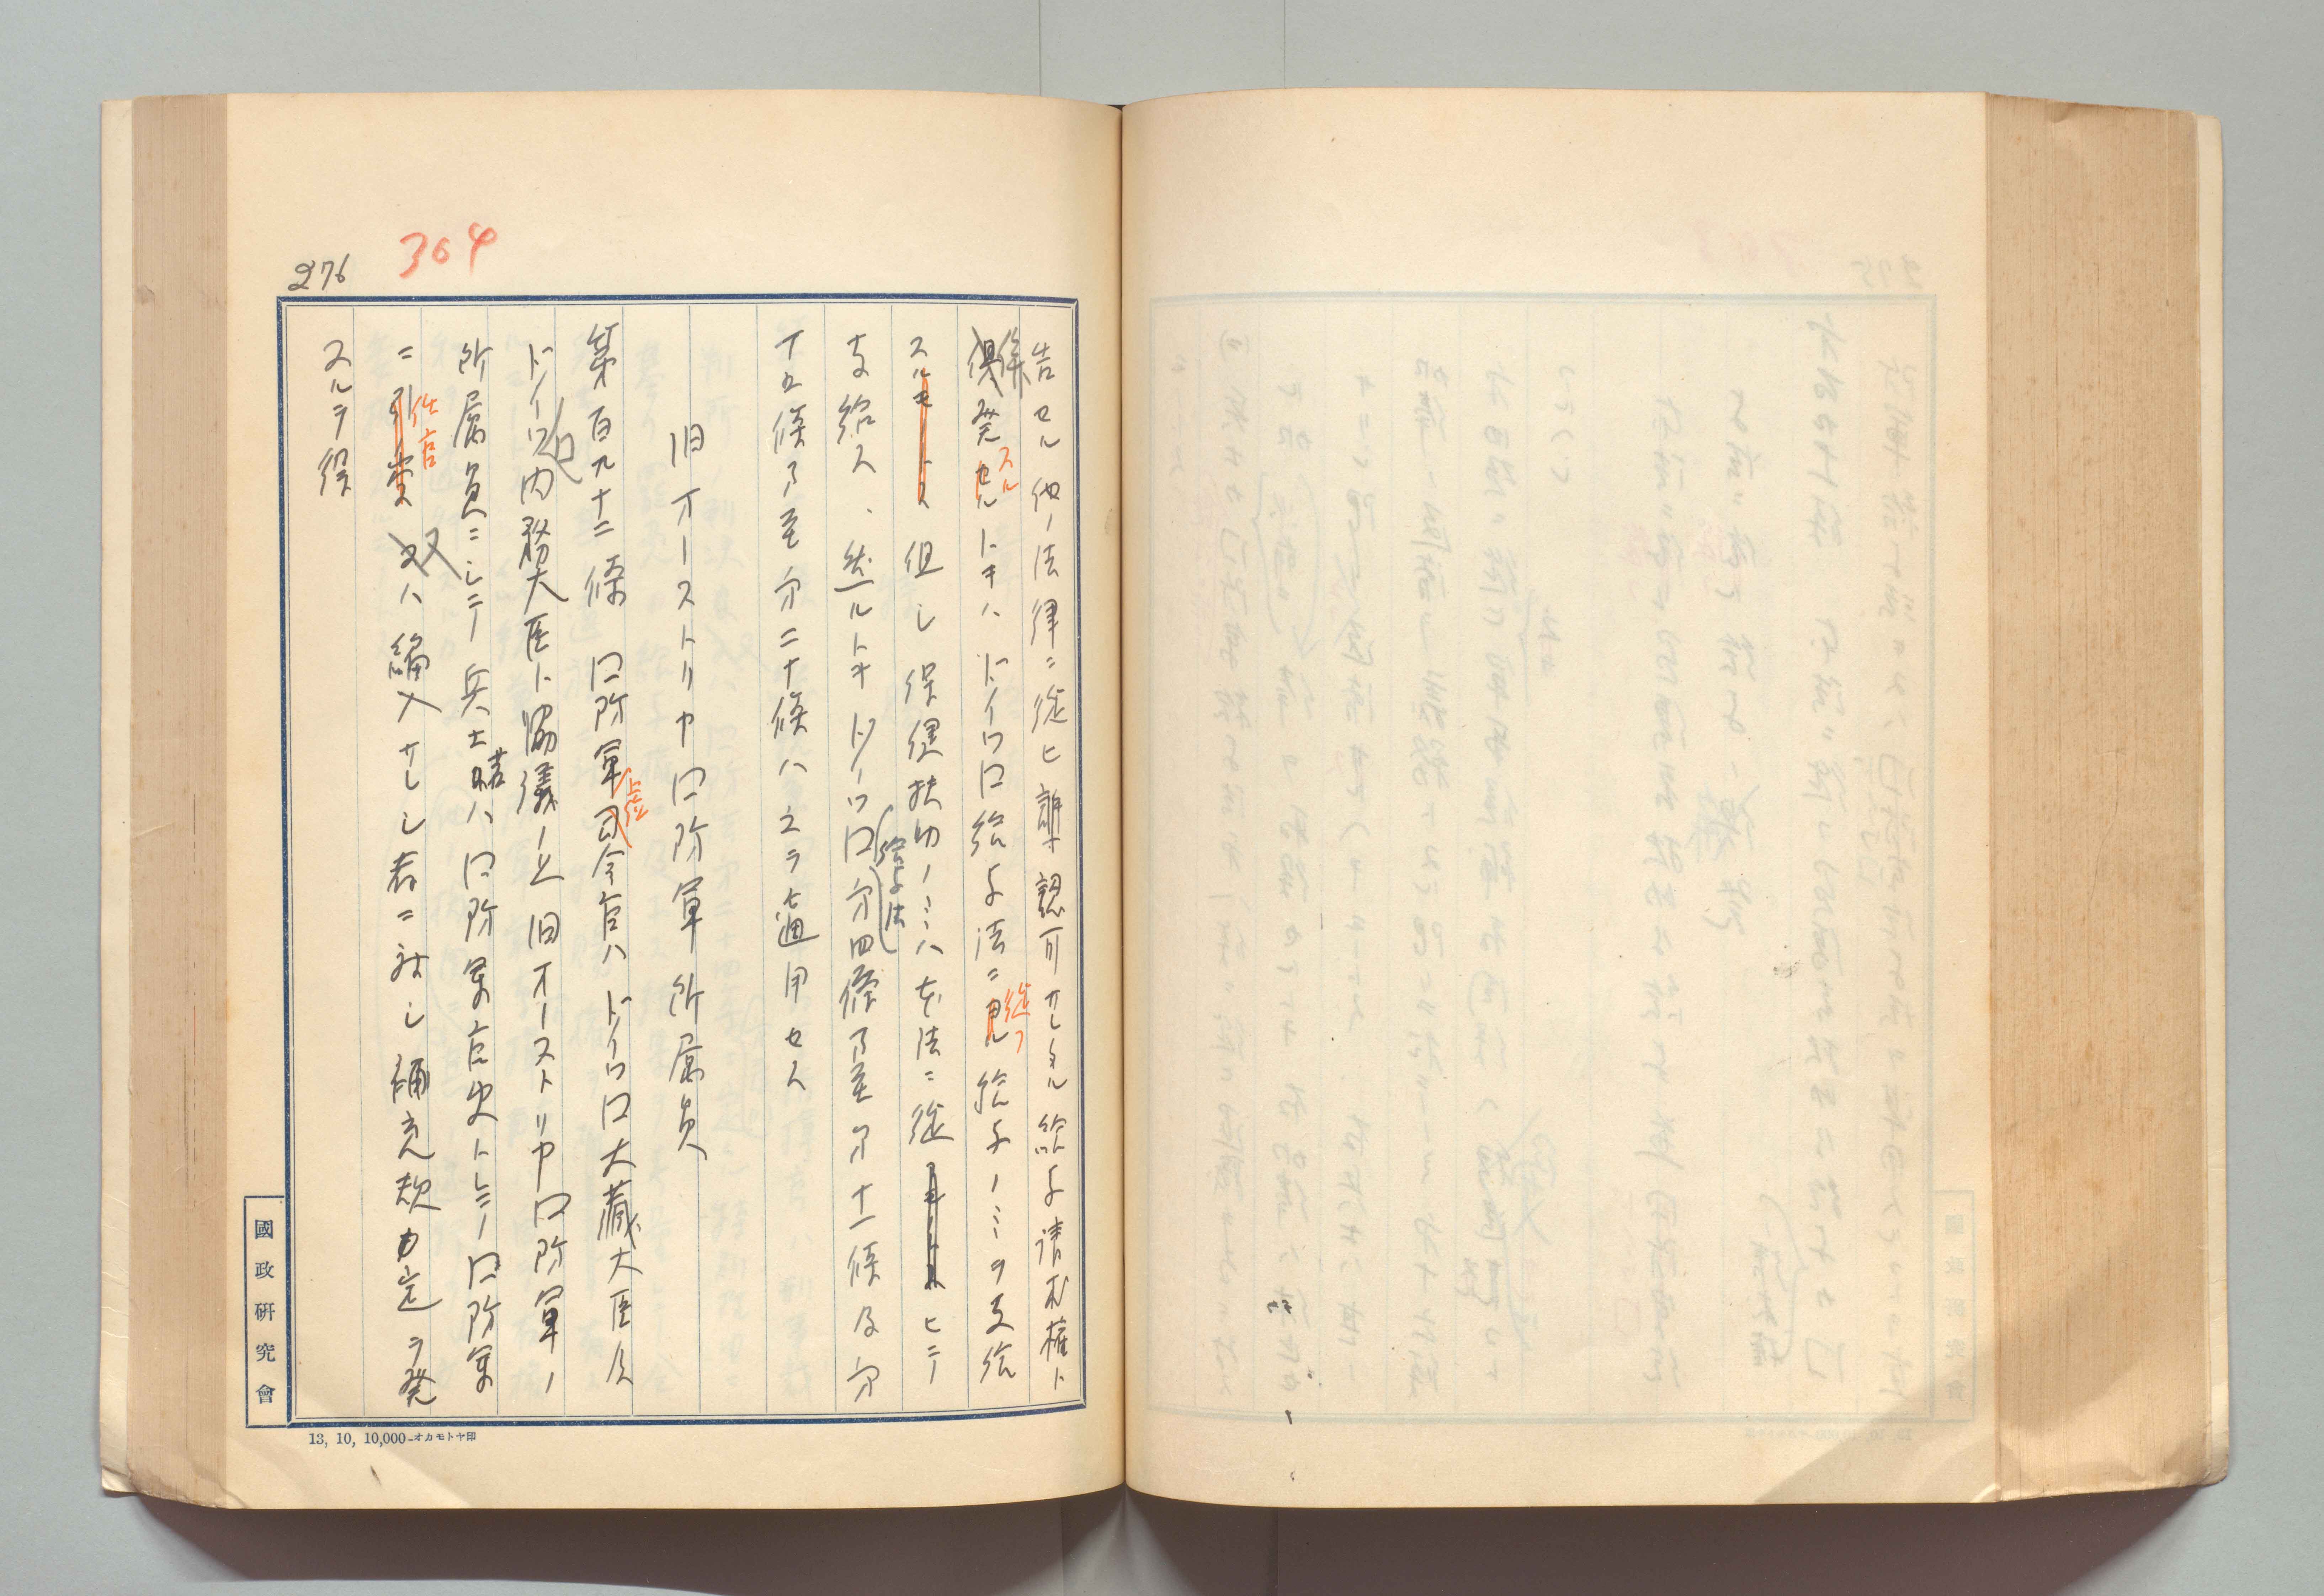 304
276
告セル他ノ法律ニ従ヒ認可サレタル給与請求権ト
併発スルトキハドイツ口給与法ニ従フ給与ノミヲ支給
ス 但シ保健扶助ノミハ本法ニ従ヒテ
支給ス、然ルトキドイツ口給与法第四條乃至第十一條及第
十五條乃至第二十條ハ之ヲ適用セス
旧オーストリヤ口防軍所属員
第百九十二條 口防軍上位司令官ハドイツ口大蔵大臣及
ドイツ口内務大臣ト協議ノ上旧オーストリヤ口防軍ノ
所属員ニシテ兵士若ハ口防軍官吏トシテ口防軍
ニ任官又ハ編入サレシ者ニ対シ補充規定ヲ発
スルヲ得
國政研究會
13, 10, 10,000-オカモトヤ印